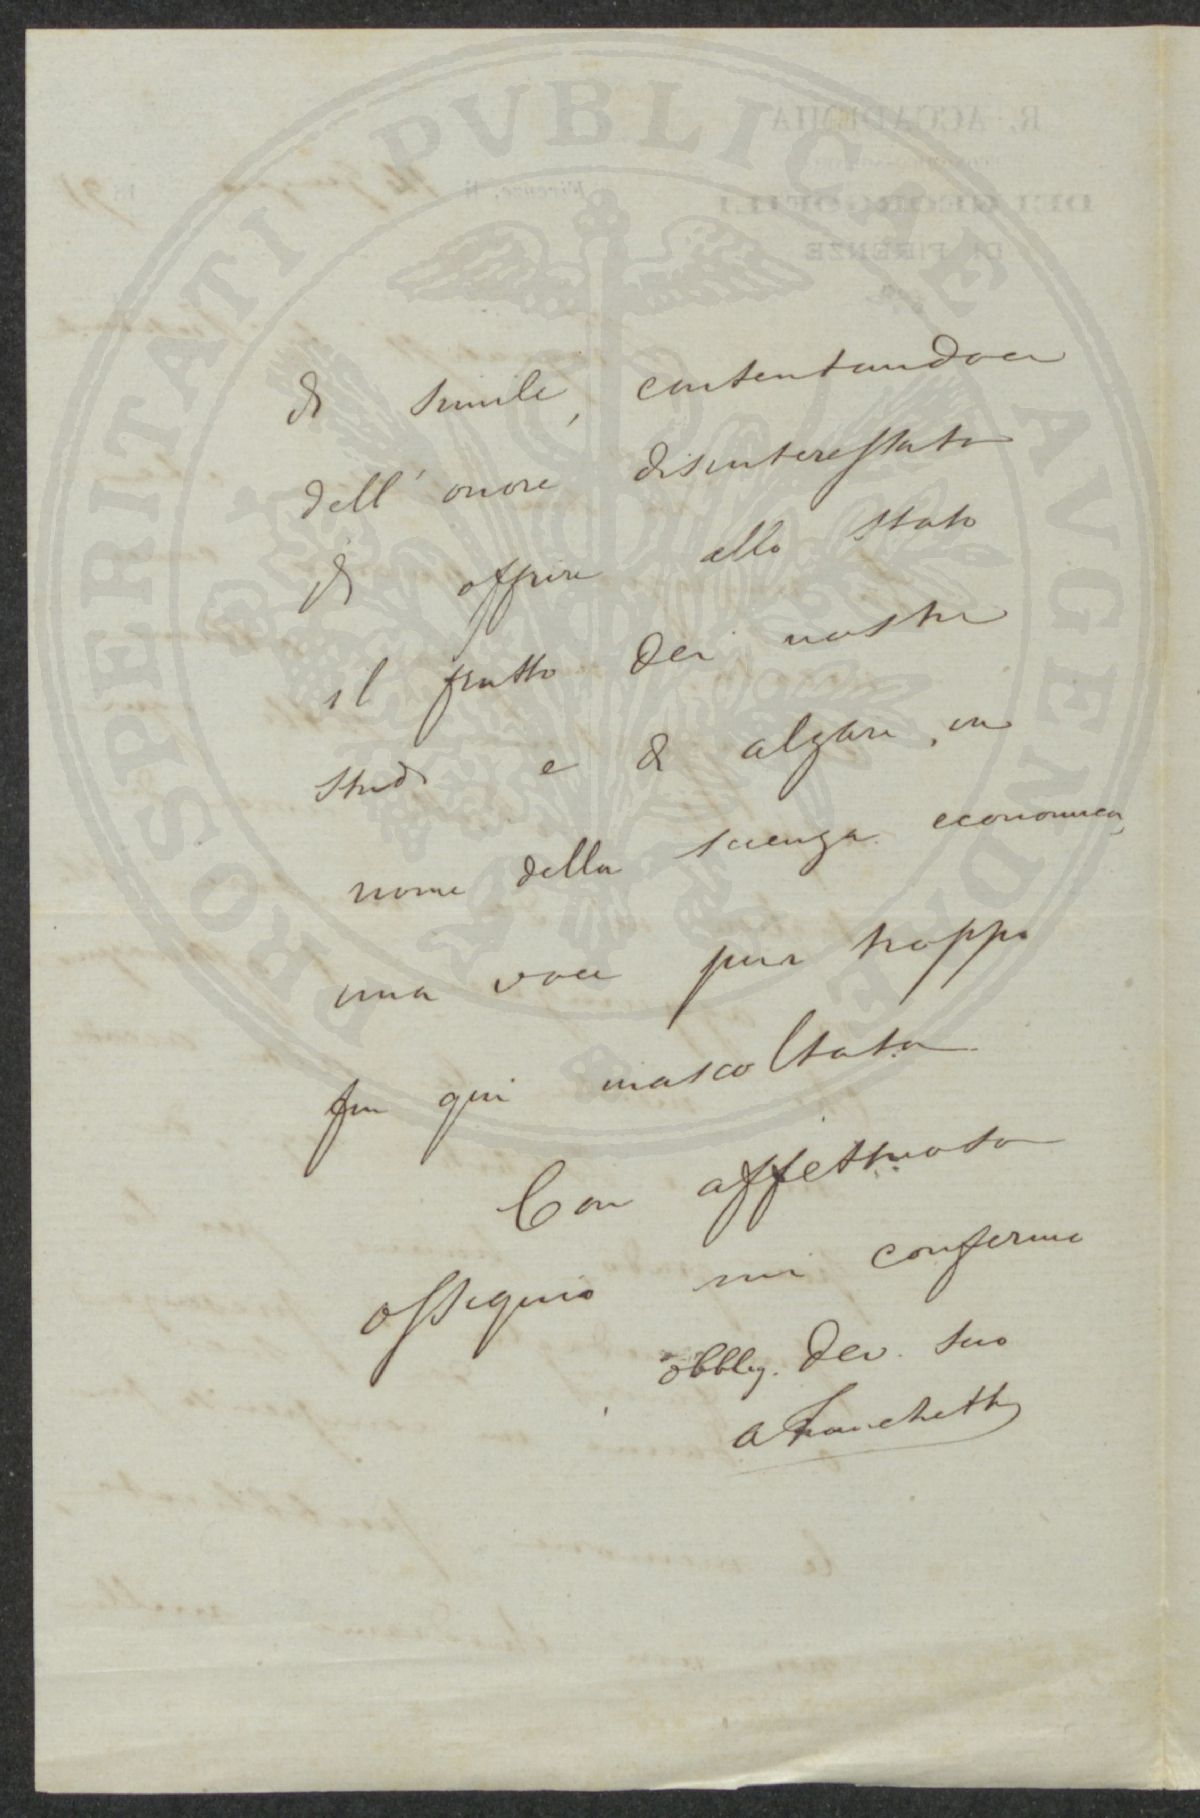 PROSPERITATI PVBLICAE AVGENDAE
di simile, contentandoci
dell'onore disinteressato
di offrire allo Stato
il frutto dei nostri
studi e di alzare, in
nome della scienza economica,
una voce pur troppo
fin qui inascoltata
Con affettuoso
ossequio mi confermo
obblig. dev. suo
A Franchetti